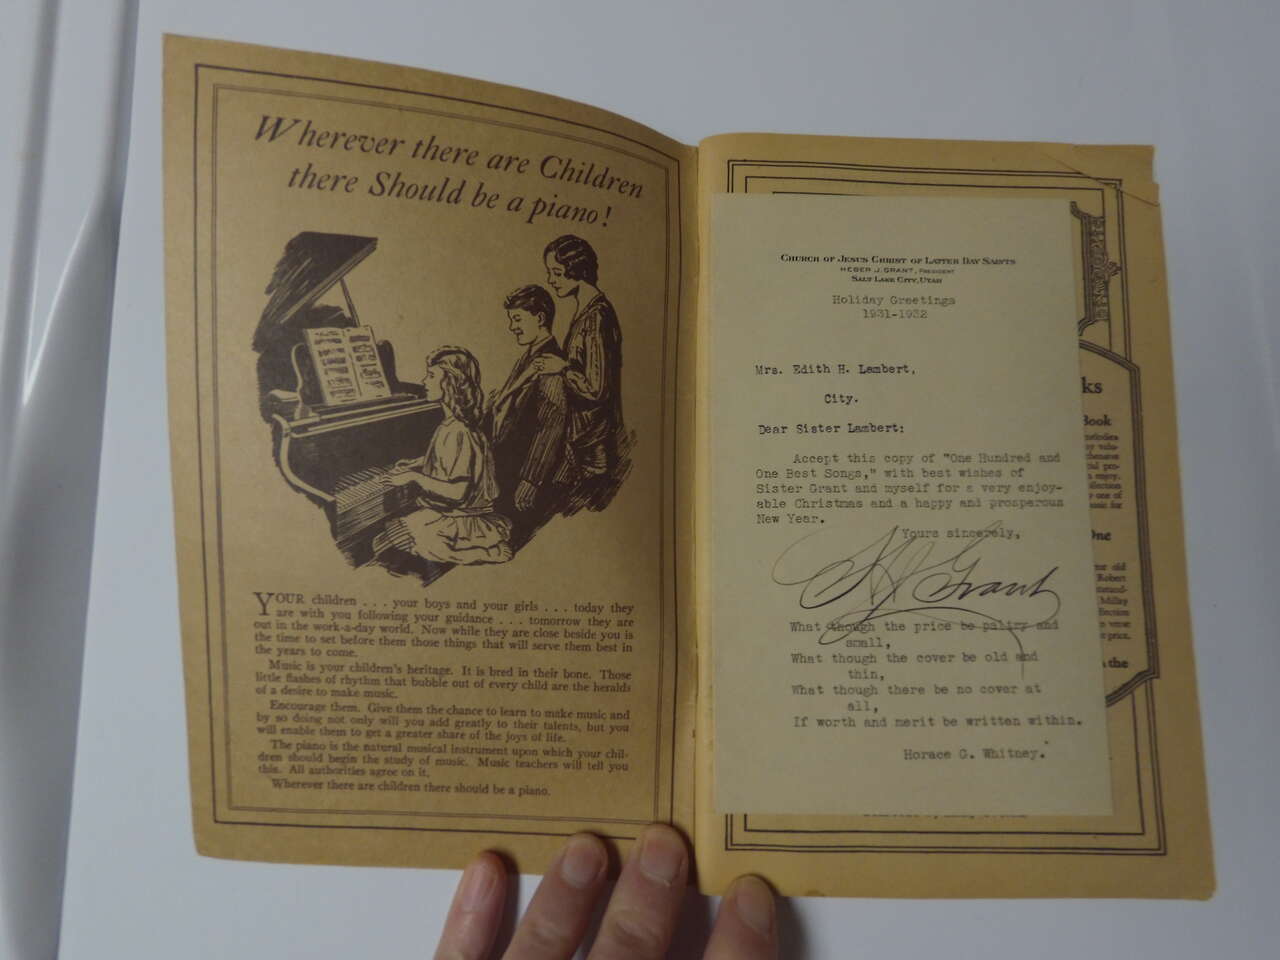 Wherever there are Children
there Should be a piano!
YOUR children . . . your boys and your girls . . . today they
are with you following your guidance . . . tomorrow they are
out in the work-a-day world. Now while they are close beside you is
the time to set before them those things that will serve them best in
the years to come.
Music is your children's heritage. It is bred in their bone. Those
little flashes of rhythm that bubble out of every child are the heralds
of a desire to make music.
Encourage them. Give them the chance to learn to make music and
by so doing not only will you add greatly to their talents, but you
will enable them to get a greater share of the joys of life.
The piano is the natural musical instrument upon which your chil-
dren should begin the study of music. Music teachers will tell you
this. All authorities agree on it.
Wherever there are children there should be a piano.
CHURCH OF JESUS CHRIST OF LATTER DAY SAINTS
HEBER J. GRANT, PRESIDENT
SALT LAKE CITY, UTAH
Holiday Greetings
1931-1932
Mrs. Edith H. Lambert,
City.
Dear Sister Lambert:
Accept this copy of "One Hundred and
One Best Songs," with best wishes of
Sister Grant and myself for a very enjoy-
able Christmas and a happy and prosperous
New Year.
Yours sincerely,
H J Grant
What though the price be paltry and
small,
What though the cover be old and
thin,
What though there be no cover at
all,
If worth and merit be written within.
Horace G. Whitney.
ks
Book
One
old
Robert
verse
price.
the